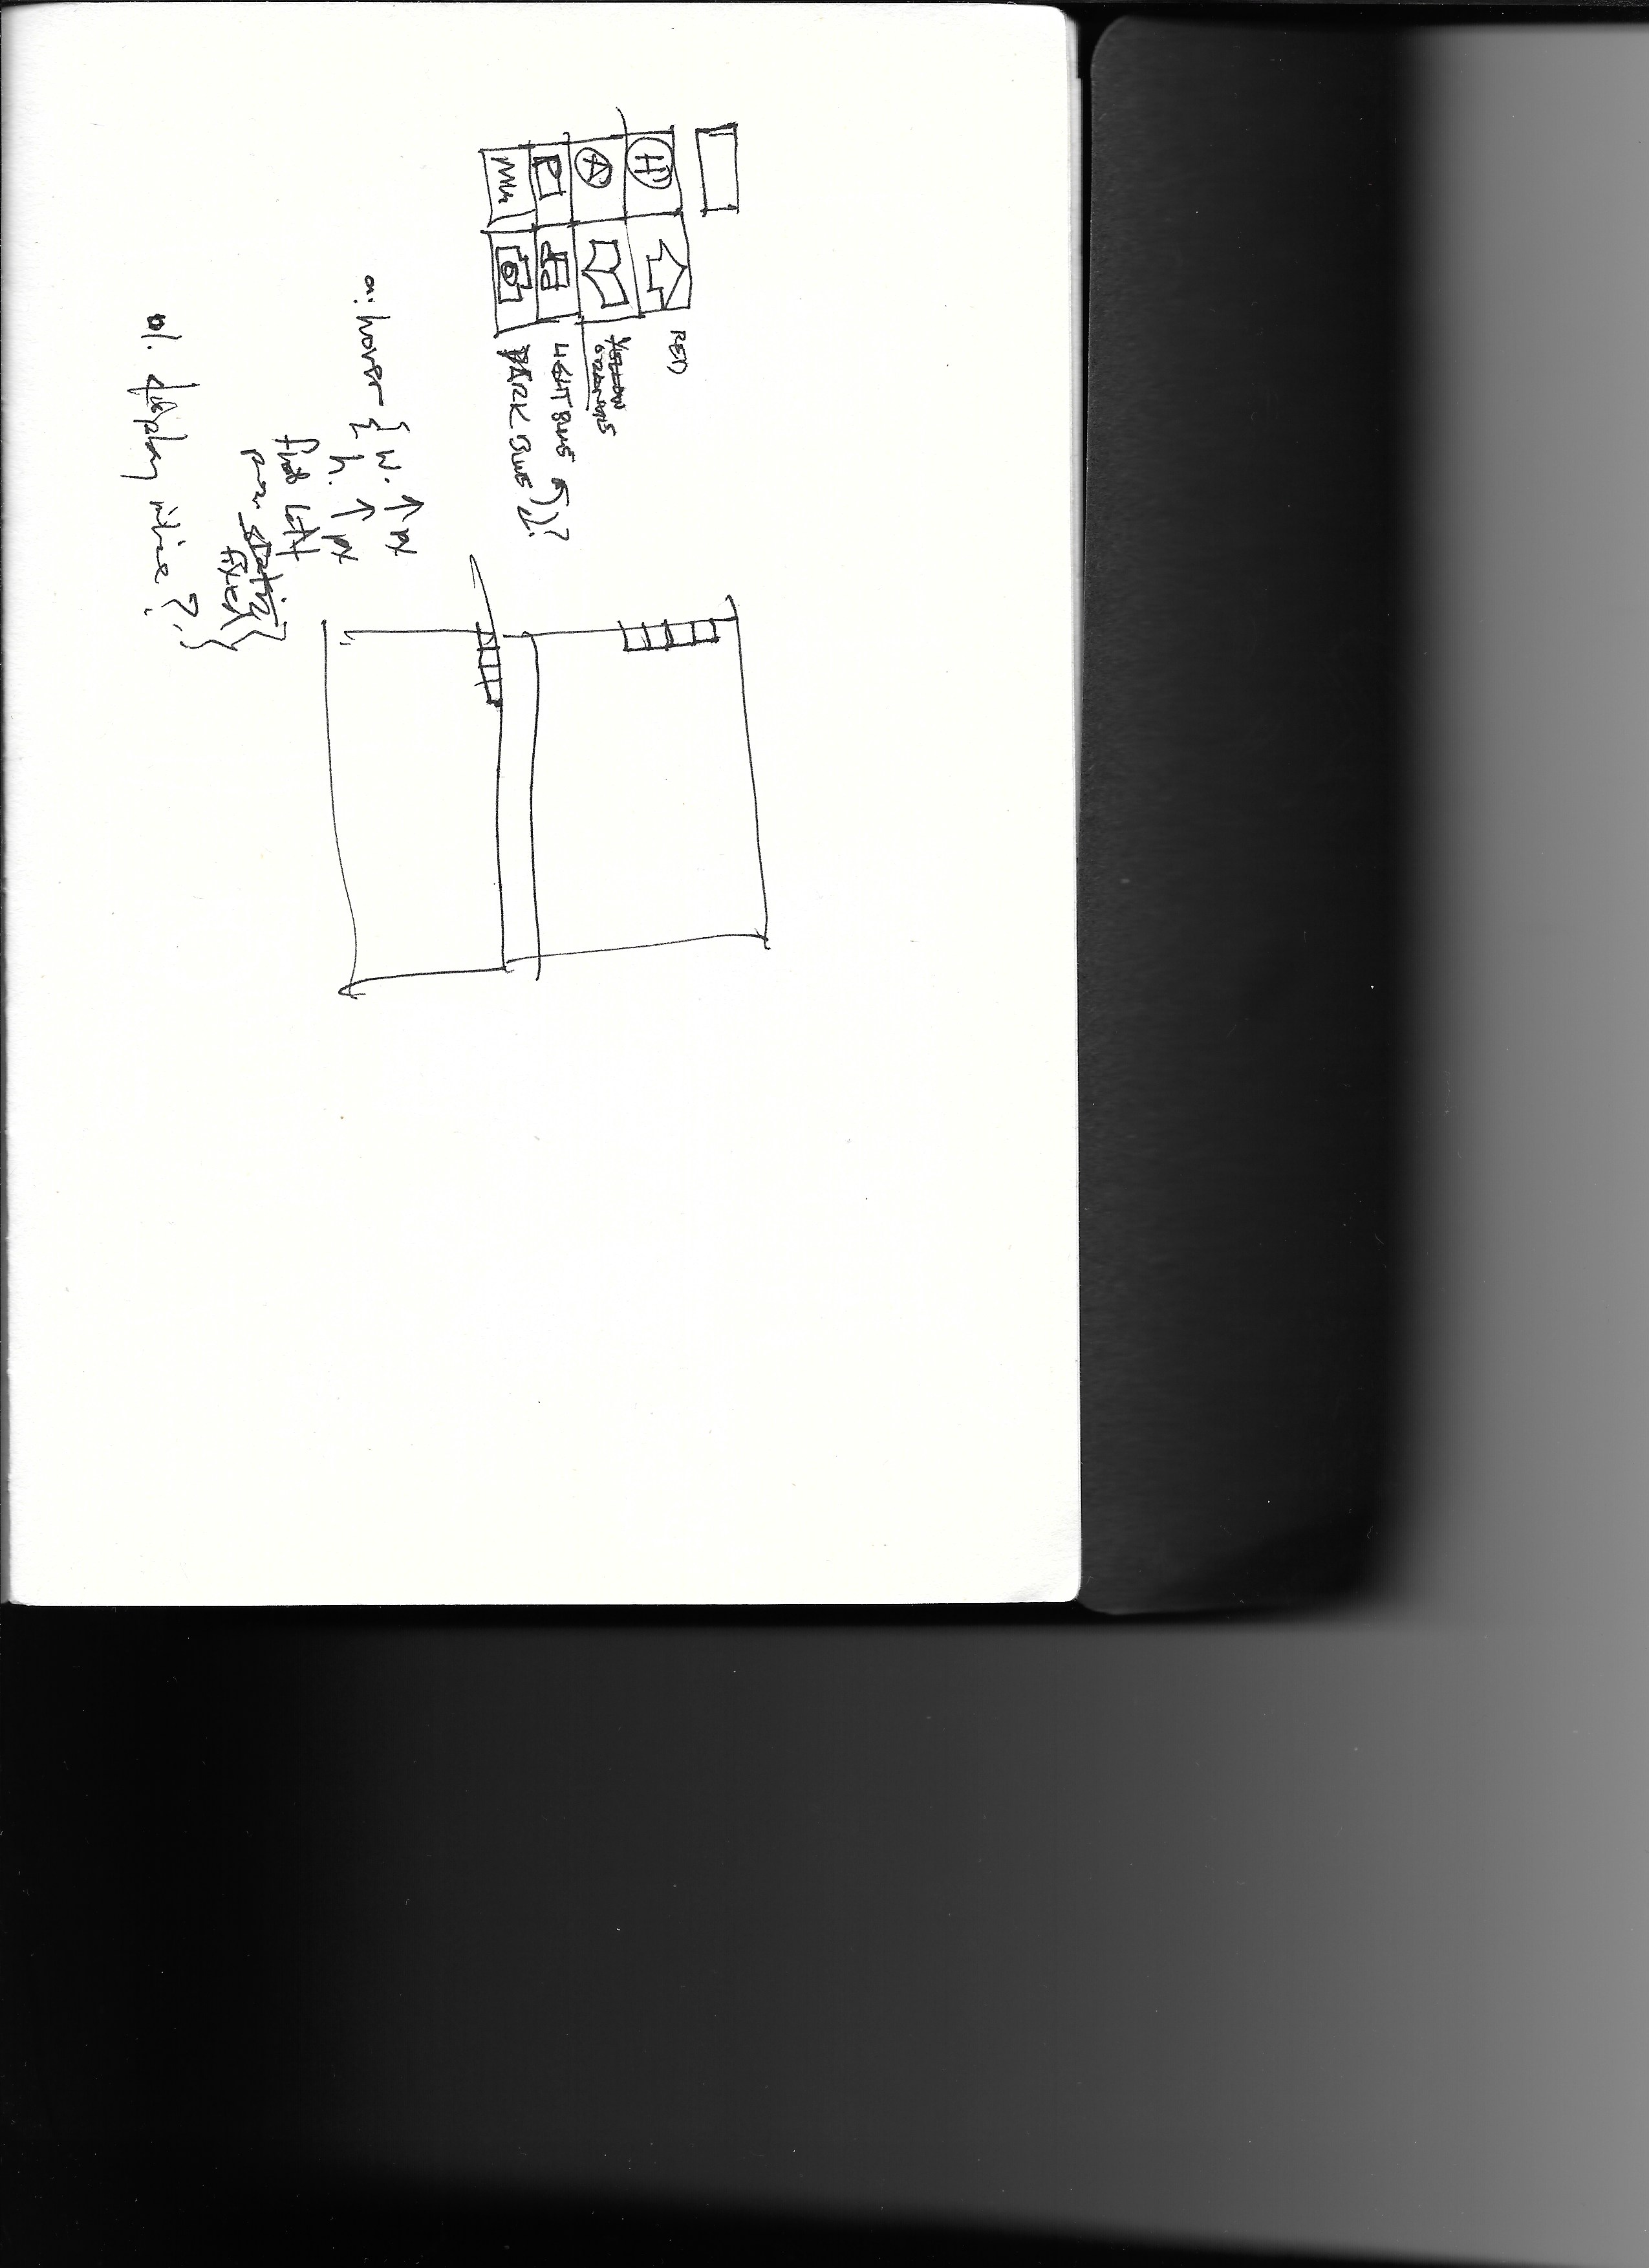 H
A
RED
YELLOW
ORANGE
LIGHT BLUE
DARK BLUE
a:hover { w. ↑ px
h. ↑ px
float left
static
fixed }
display inline ?. }